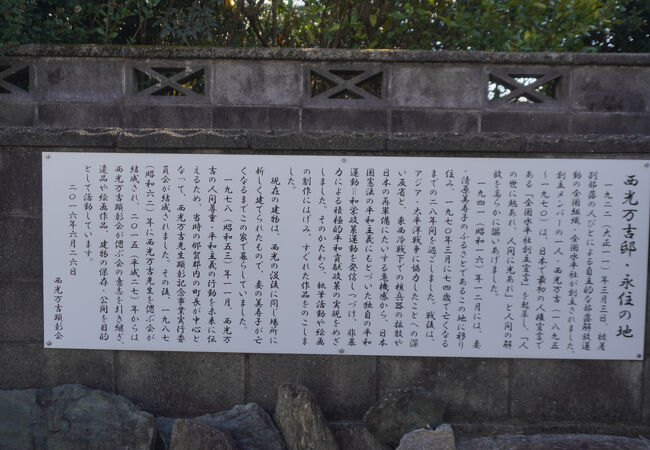 西光万吉邸・永住の地
一九二二(大正一一)年三月三日、被差
別部落の人びとによる自主的な部落解放運
動の全国組織、全国水平社が創立されました。
創立メンバーの一人、西光万吉(一八九五
～一九七〇)は、日本で最初の人権宣言で
ある「全国水平社創立宣言」を起草し、「人
の世に熱あれ、人間に光あれ」と人間の解
放を高らかに謳いあげました。
一九四一(昭和一六)年一二月には、妻
(清原美寿子)のふるさとであるこの地に移り
住み、一九七〇年三月に七四歳で亡くなる
までの二八年間を過ごしました。戦後は、
アジア・太平洋戦争に協力したことへの深
い反省と、東西冷戦下での核兵器の拡散や
日本の再軍備にたいする危機感から、日本
国憲法の平和主義にもとづいた独自の平和
運動=和栄政策の運動を発信しつづけ、非暴
力による積極的平和貢献政策の実現をめざ
しました。そのかたわら、執筆活動や絵画
の制作にはげみ、すぐれた作品をのこしま
した。
現在の建物は、西光の没後に同じ場所に
新しく建てられたもので、妻の美寿子が亡
くなるまでこの家で暮らしていました。
一九七八(昭和五三)年一一月、西光万
吉の人間尊重・平和主義の行動を未来に伝
えるため、当時の那賀郡内の町長が中心と
なって、西光万吉先生顕彰記念事業実行委
員会が結成されました。その後、一九八七
(昭和六二)年に西光万吉先生を偲ぶ会が
結成され、二〇一五(平成二七)年からは
西光万吉顕彰会が偲ぶ会の意志を引き継ぎ、
遺品や絵画作品、建物の保存・公開を目的
として活動しています。
二〇一六年六月二六日
西光万吉顕彰会